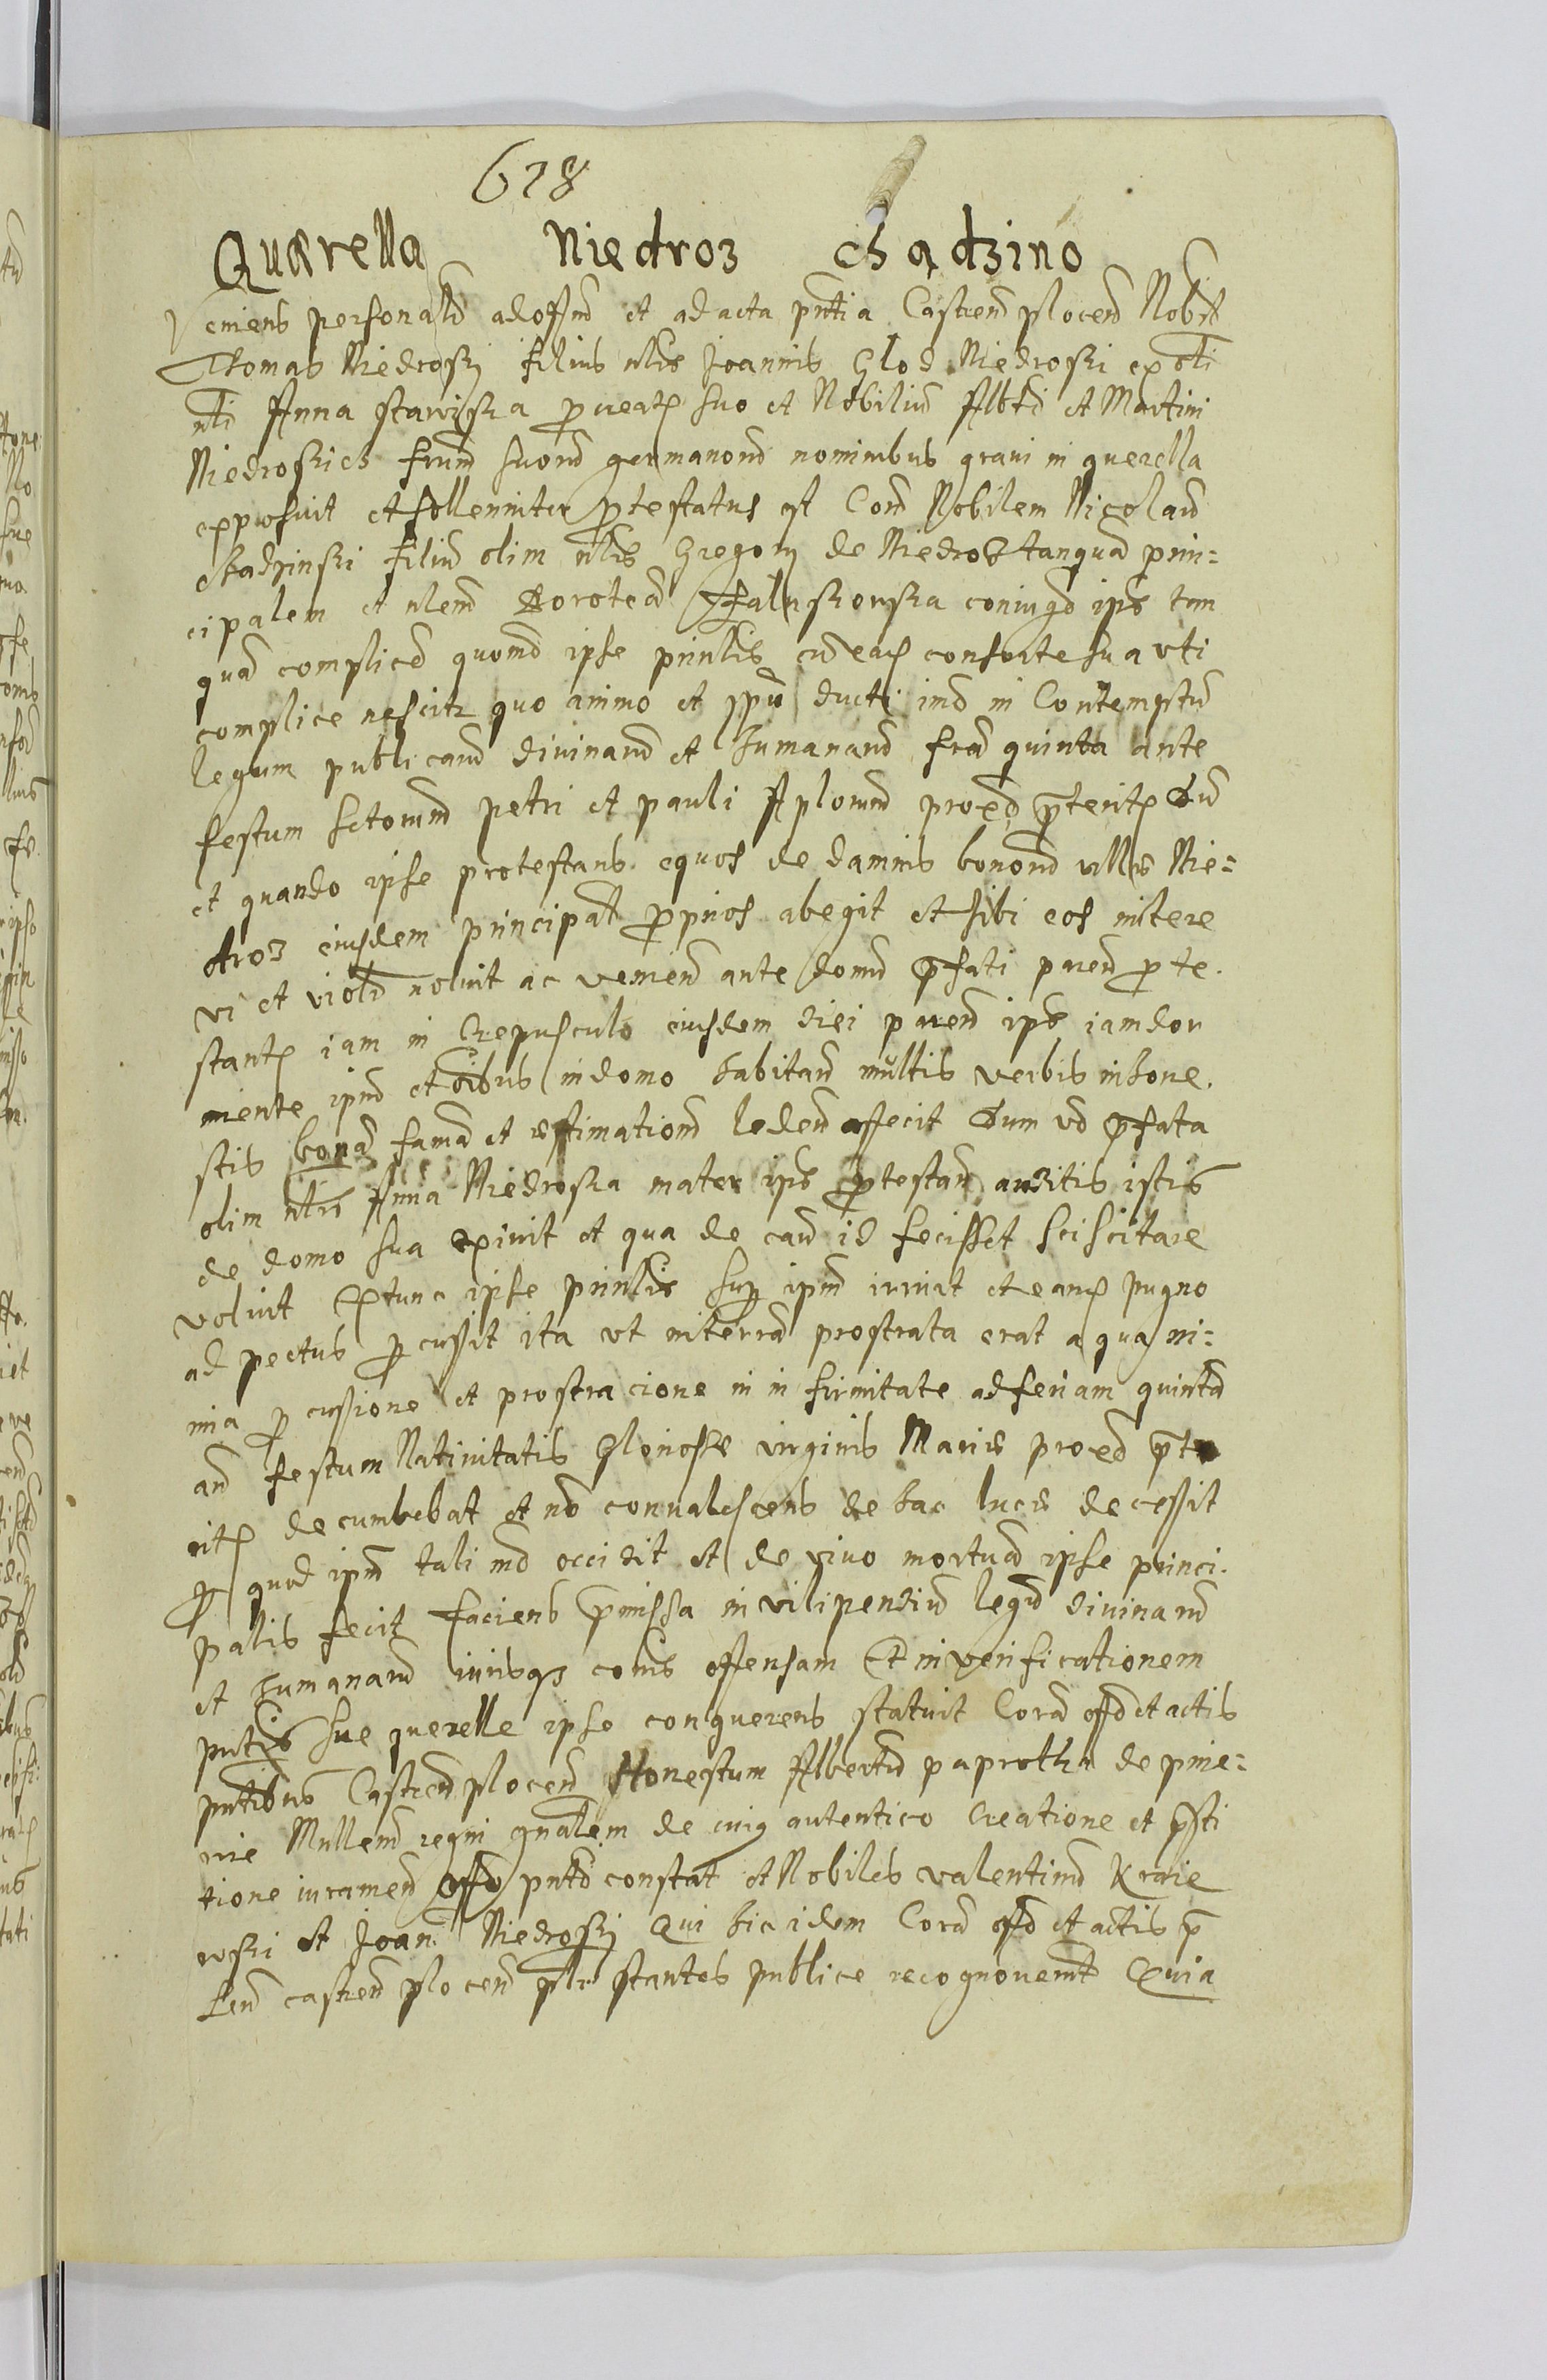 628
Quærella Niedroz Chądzino
Veniens personalr ad offm et ad acta pntia Castren plocen Nobst
Thomas Niedroski filius nlis Joannis Glod Niedroski ex oli
nli Anna stawiska procreat suo et Nobilium Albti et Martini
Niedroskich frum suorum germanorum nominibus gravi in querella
exposuit et sollenniter protestatus est Con Nobilem Nicolaum
Chadzinski filiu olim nlis Gregorij de Niedroz tanqua prin=
cipalem et nlem Dorotea coniugem ips tan
qua complice quomd ipse prinlis cu ead consorte sua uti
complice nescitr quo animo et spu ducti imo in Contemptu
legum publicaru divinaru et humanaru fria quinta ante
festum sctorum petri et pauli Aplorum proxe preterit Dum
et quando ipse protestans equos de damnis bonorum villæ Nie=
droz eiusdem principal proprios abegit et sibi eos mittere
vi et violr noluit ac venien ante domum prefati paren prote.
stant iam in Crepusculo eiusdem diei paren ips iam dor
miente ipm et oibus in domo habitan multis verbis inhone.
stis bona fama et æstimationem leden affecit Dum vo prefata
olim nlis Anna Niedroska mater ips protestan auditis istis
de domo sua exivit et qua de cau id fecisset sciscitare
voluit Extunc ipse prinlis sup ipm irruit et eam pugno
ad pectus percussit ita ut in terra prostrata erat a qua ni=
mia percussione et prostracione in infirmitate ad feriam quinta
an festum Nativitatis Gloriosse virginis Mariæ proxe prete
rit decumbebat et no convalescens de hac luce decessit
per quod ipm tali mo occidit et de vivo mortua ipse princi.
palis fecit faciens premissa in vilipendiu legu divinaru
et humanaru iurisq cois offensam Et in verificationem
pntis sue querelle ipse conquerens statuit Cora offo et actis
pntibus Castren plocen Honestum Albertu paprotka de pnie=
wie Mnllem regni gnalem de cuius autentico Creatione et presti
tione iuramen offo pnti constat et Nobiles valentinu Kraie
wski et Joan Niedroski Qui hic idem Cora offo et actis p
sen castren plocen plr stantes publice recognoverunt Quia